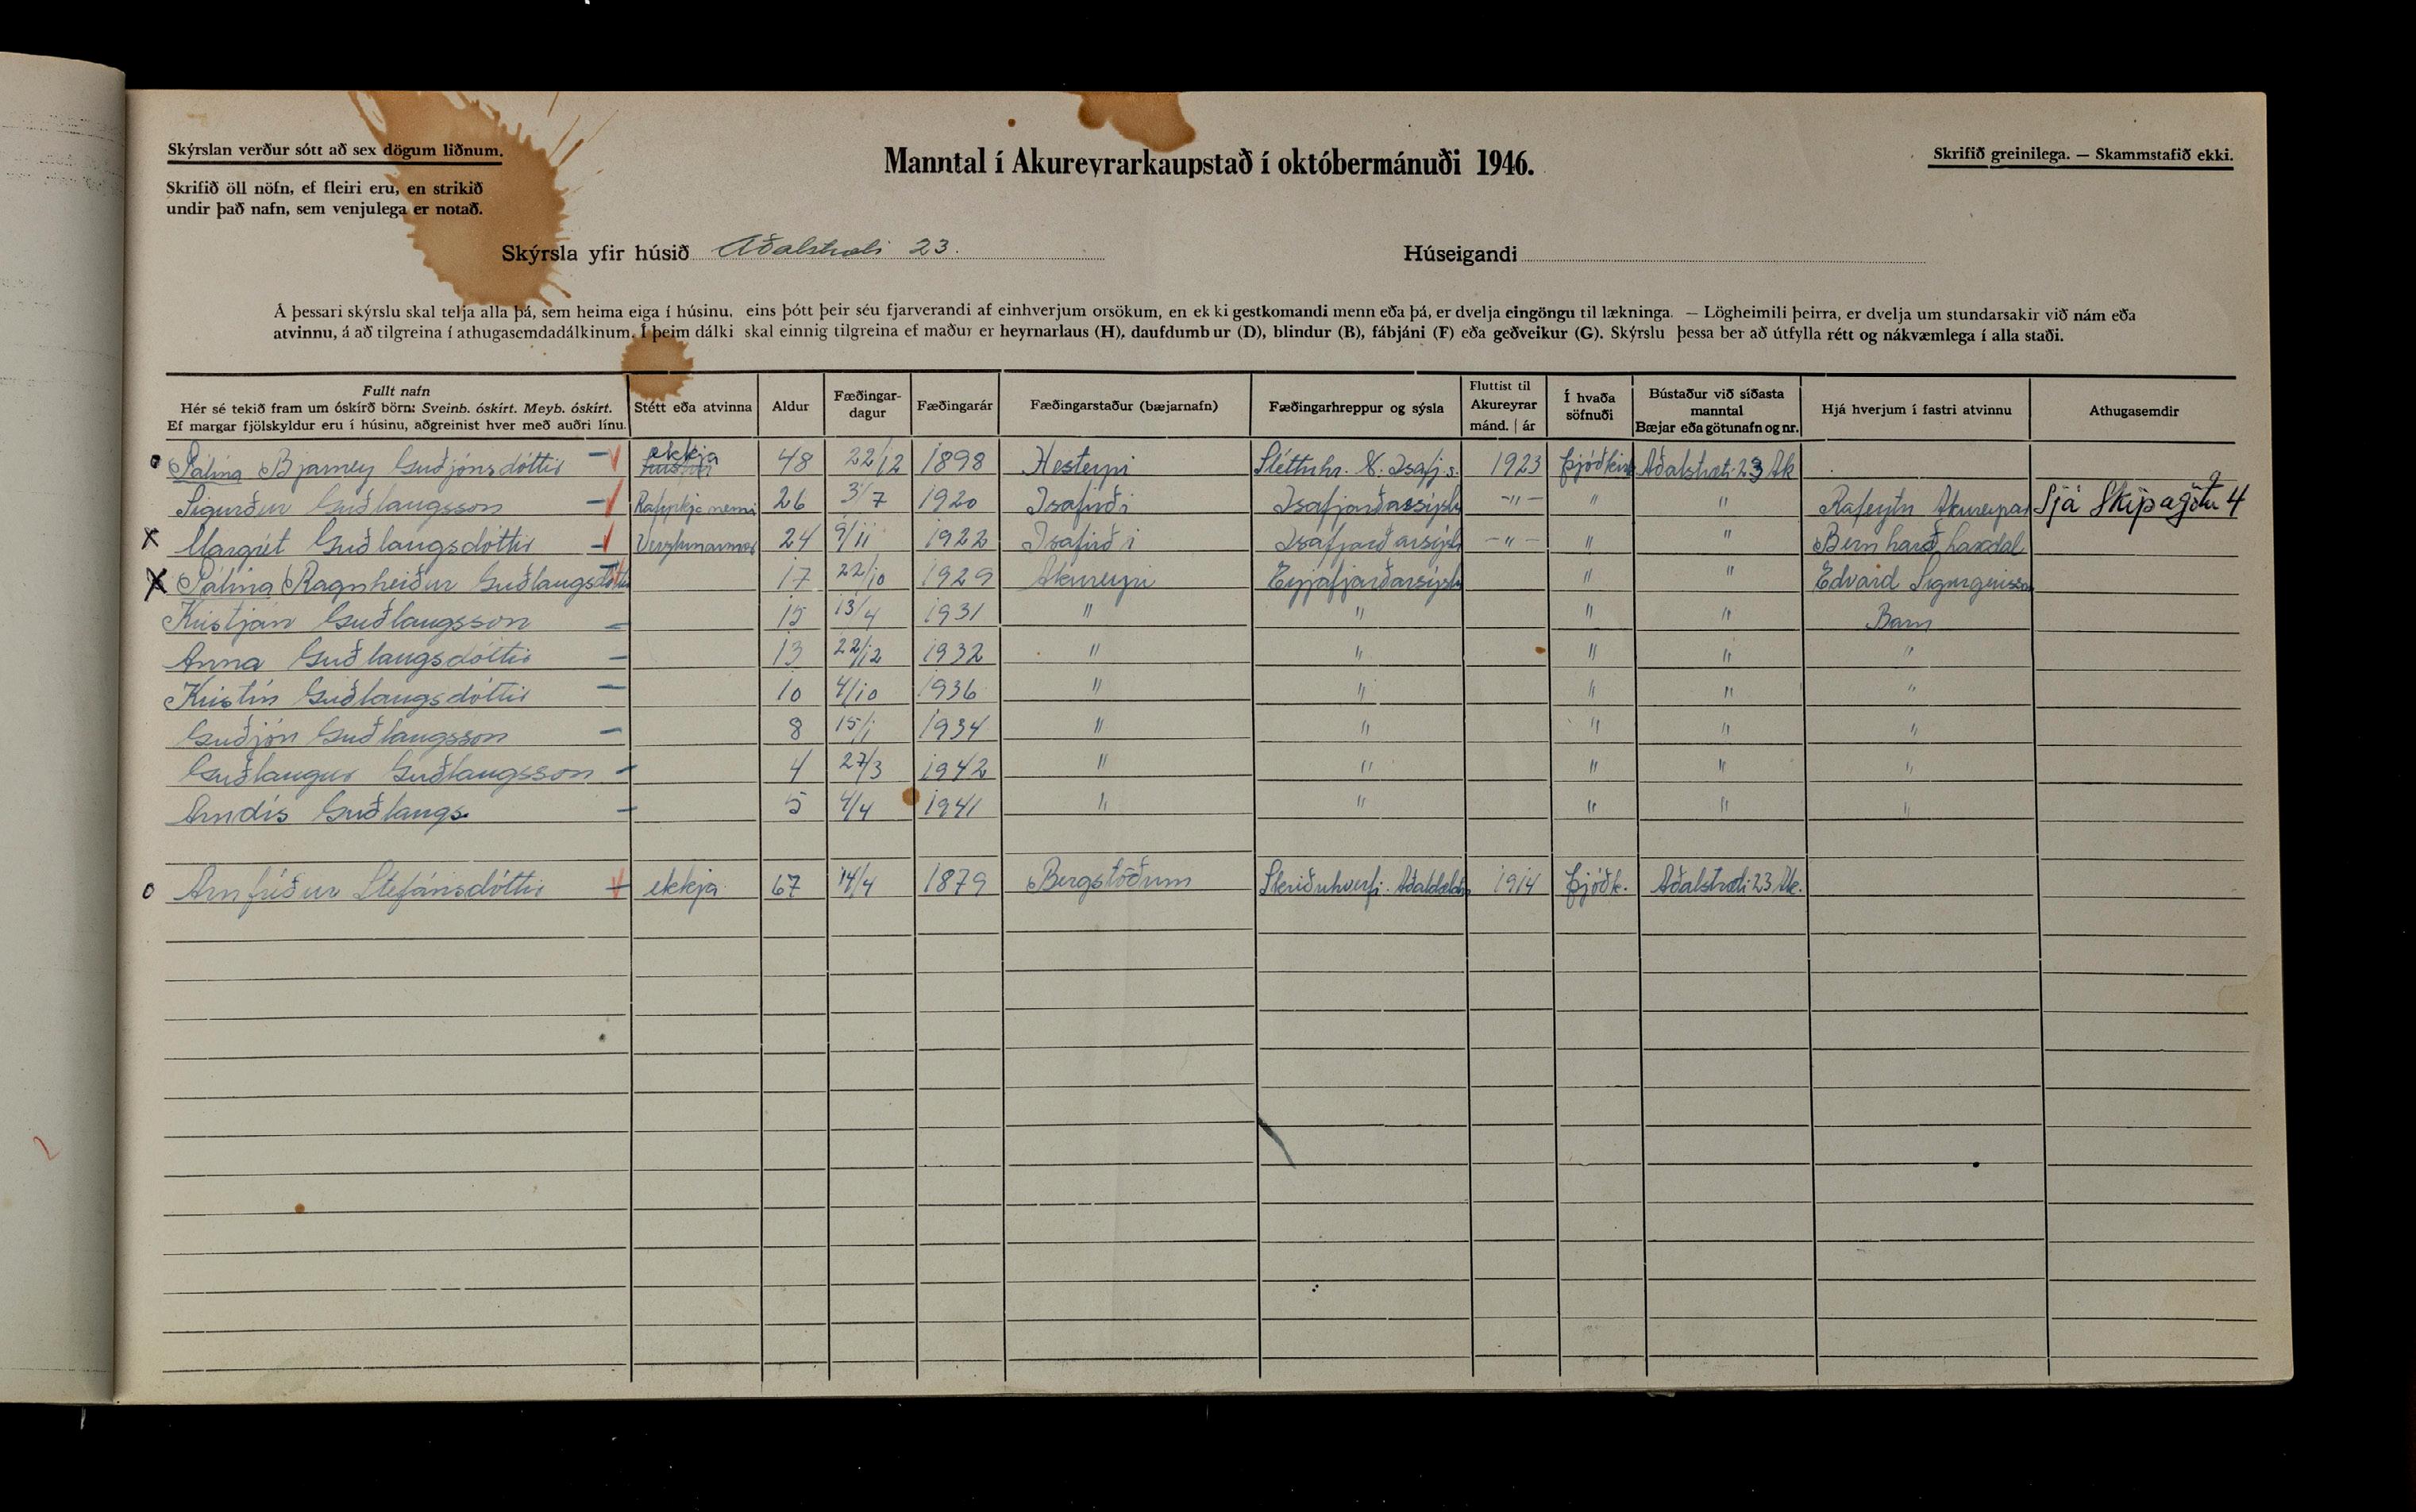 Skýrslan verður sótt að sex dögum liðnum.
Manntal í Akureyrarkaupstað í októbermánuði 1946.
Skrifið greinilega. — Skammstafið ekki.
Skrifið öll nöfn, ef fleiri eru, en strikið
undir það nafn, sem venjulega er notað.
Skýrsla yfir húsið Aðalstræti 23.
Húseigandi
Á þessari skýrslu skal telja alla þá, sem heima eiga í húsinu, eins þótt þeir séu fjarverandi af einhverjum orsökum, en ekki gestkomandi menn eða þá, er dvelja eingöngu til lækninga. — Lögheimili þeirra, er dvelja um stundarsakir við nám eða
atvinnu, á að tilgreina í athugasemdadálkinum. Í þeim dálki skal einnig tilgreina ef maður er heyrnarlaus (H), daufdumbur (D), blindur (B), fábjáni (F) eða geðveikur (G). Skýrslu þessa ber að útfylla rétt og nákvæmlega í alla staði.
Fullt nafn
Hér sé tekið fram um óskírð börn: Sveinb. óskírt. Meyb. óskírt.
Ef margar fjölskyldur eru í húsinu, aðgreinist hver með auðri línu.
Stétt eða atvinna
Aldur
Fæðingar-
dagur
Fæðingarár
Fæðingarstaður (bæjarnafn)
Fæðingarhreppur og sýsla
Fluttist til
Akureyrar
mánd. | ár
Í hvaða
söfnuði
Bústaður við síðasta
manntal
Bæjar eða götunafn og nr.
Hjá hverjum í fastri atvinnu
Athugasemdir
o Pálína Bjarney Guðjónsdóttir — ekkja 48 22/12 1898 Hesteyri Sléttuhr. N. Ísafj.s. 1923 Þjóðkirk Aðalstræti 23 Ak
Sigurður Guðlaugsson — Rafvirkja nemi 26 3/7 1920 Ísafirði Ísafjarðarsýslu —"— " " Rafveitu Akureyrar Sjá Skipagötu 4
x Margrét Guðlaugsdóttir — 24 9/11 1922 Ísafirði Ísafjarðarsýsl —"— " " Bernharð Laxdal
x Pálína Ragnheiður Guðlaugsdóttir 17 22/10 1929 Akureyri Eyjafjarðarsýslu " " Edvard Sigurgeirsson
Kristján Guðlaugsson — 15 13/4 1931 " " " " Barn
Anna Guðlaugsdóttir — 13 22/12 1932 " " " " "
Kristín Guðlaugsdóttir — 10 4/10 1936 " " " " "
Guðjón Guðlaugsson — 8 15/1 1934 " " " " "
Guðlaugur Guðlaugsson — 4 27/3 1942 " " " " "
Arndís Guðlaugs. — 5 4/4 1941 " " " " "
o Arnfríður Stefánsdóttir — ekkja 67 14/4 1879 Bergstöðum Skriðuhverfi. Aðaldælahr 1914 Þjóðk. Aðalstræti 23 Ak.